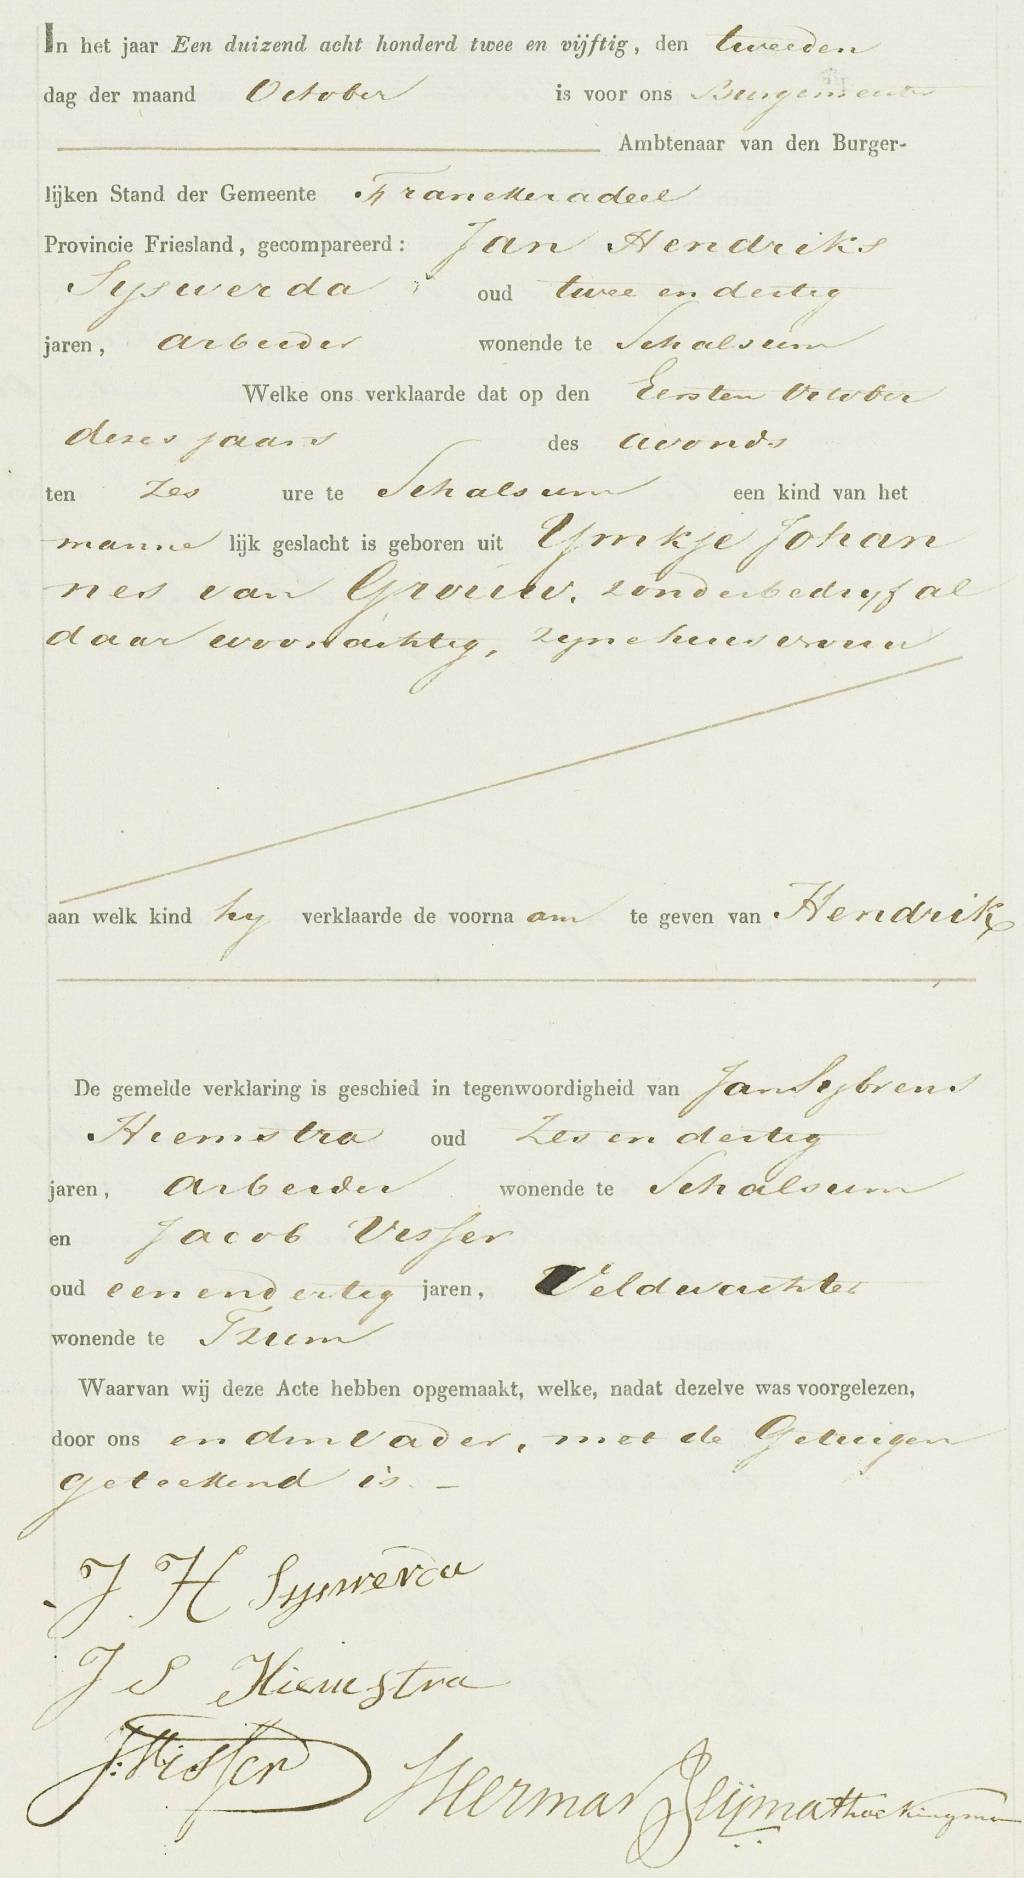 In het jaar Een duizend acht honderd twee en vijftig, den tweeden
dag der maand October is voor ons Burgemeester
Ambtenaar van den Burger-
lijken Stand der Gemeente Franekeradeel
Provincie Friesland, gecompareerd: Jan Hendriks
Syswerda oud twee en dertig
jaren, arbeider wonende te Schalsum
Welke ons verklaarde dat op den Eersten October
dezes jaars des avonds
ten zes ure te Schalsum een kind van het
manne lijk geslacht is geboren uit Ymkje Johan
nes van Grouw, zonder bedryf al
daar woonachtig, zyne huisvrouw
aan welk kind hy verklaarde de voorna am te geven van Hendrik
De gemelde verklaring is geschied in tegenwoordigheid van Jan Sybrens
Hiemstra oud zes en dertig
jaren, arbeider wonende te Schalsum
en Jacob Visser
oud een en dertig jaren, Veldwachter
wonende te Tzum
Waarvan wij deze Acte hebben opgemaakt, welke, nadat dezelve was voorgelezen,
door ons en den vader, met de Getuigen
geteekend is. —
J H Syswerda
J S Hiemstra
J: Visser Herman